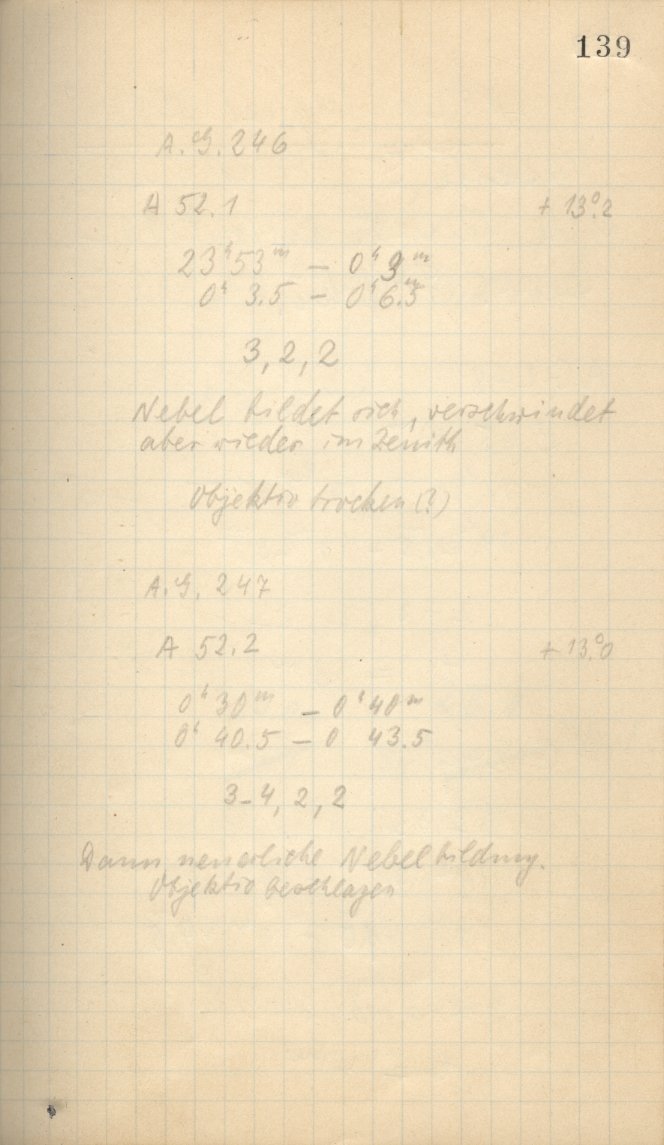 139
A.G. 246
A 52.1 + 13°.2
23ʰ53ᵐ — 0ʰ 3ᵐ
0ʰ 3.5 — 0ʰ6.5ᵐ
3, 2, 2
Nebel bildet sich, verschwindet
aber wieder im Zenith
Objektiv trocken (?)
A.G. 247
A 52.2 + 13°.0
0ʰ 30ᵐ — 0ʰ 40ᵐ
0ʰ 40.5 — 0 43.5
3-4, 2, 2
Dann neuerliche Nebelbildung.
Objektiv beschlagen